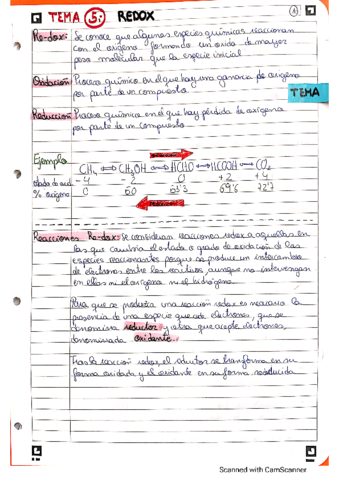 TEMA 5: REDOX
Re-dox: Se conoce que algunas especies químicas reaccionan
con el oxígeno formando un óxido de mayor
peso molecular que la especie inicial
Oxidación: Proceso químico en el que hay una ganancia de oxígeno
por parte de un compuesto
TEMA
Reducción: Proceso químico en el que hay pérdida de oxígeno
por parte de un compuesto
Ejemplo
CH4 ⟺ CH3OH ⟺ HCHO ⟺ HCOOH ⟺ CO2
-4 -2 0 +2 +4
% oxígeno 0 50 53'3 69'6 72'7
Reacciones Re-dox: Se consideran reacciones redox a aquellas en
las que cambia el estado o grado de oxidación de las
especies reaccionantes porque se produce un intercambio
de electrones entre los reactivos, aunque no intervengan
en ellas ni el oxígeno ni el hidrógeno.
Para que se produzca una reacción redox es necesaria la
presencia de una especie que cede electrones, que se
denomina reductor y otra que acepte electrones,
denominada oxidante.
Tras la reacción redox, el reductor se transforma en su
forma oxidada y el oxidante en su forma reducida
Scanned with CamScanner